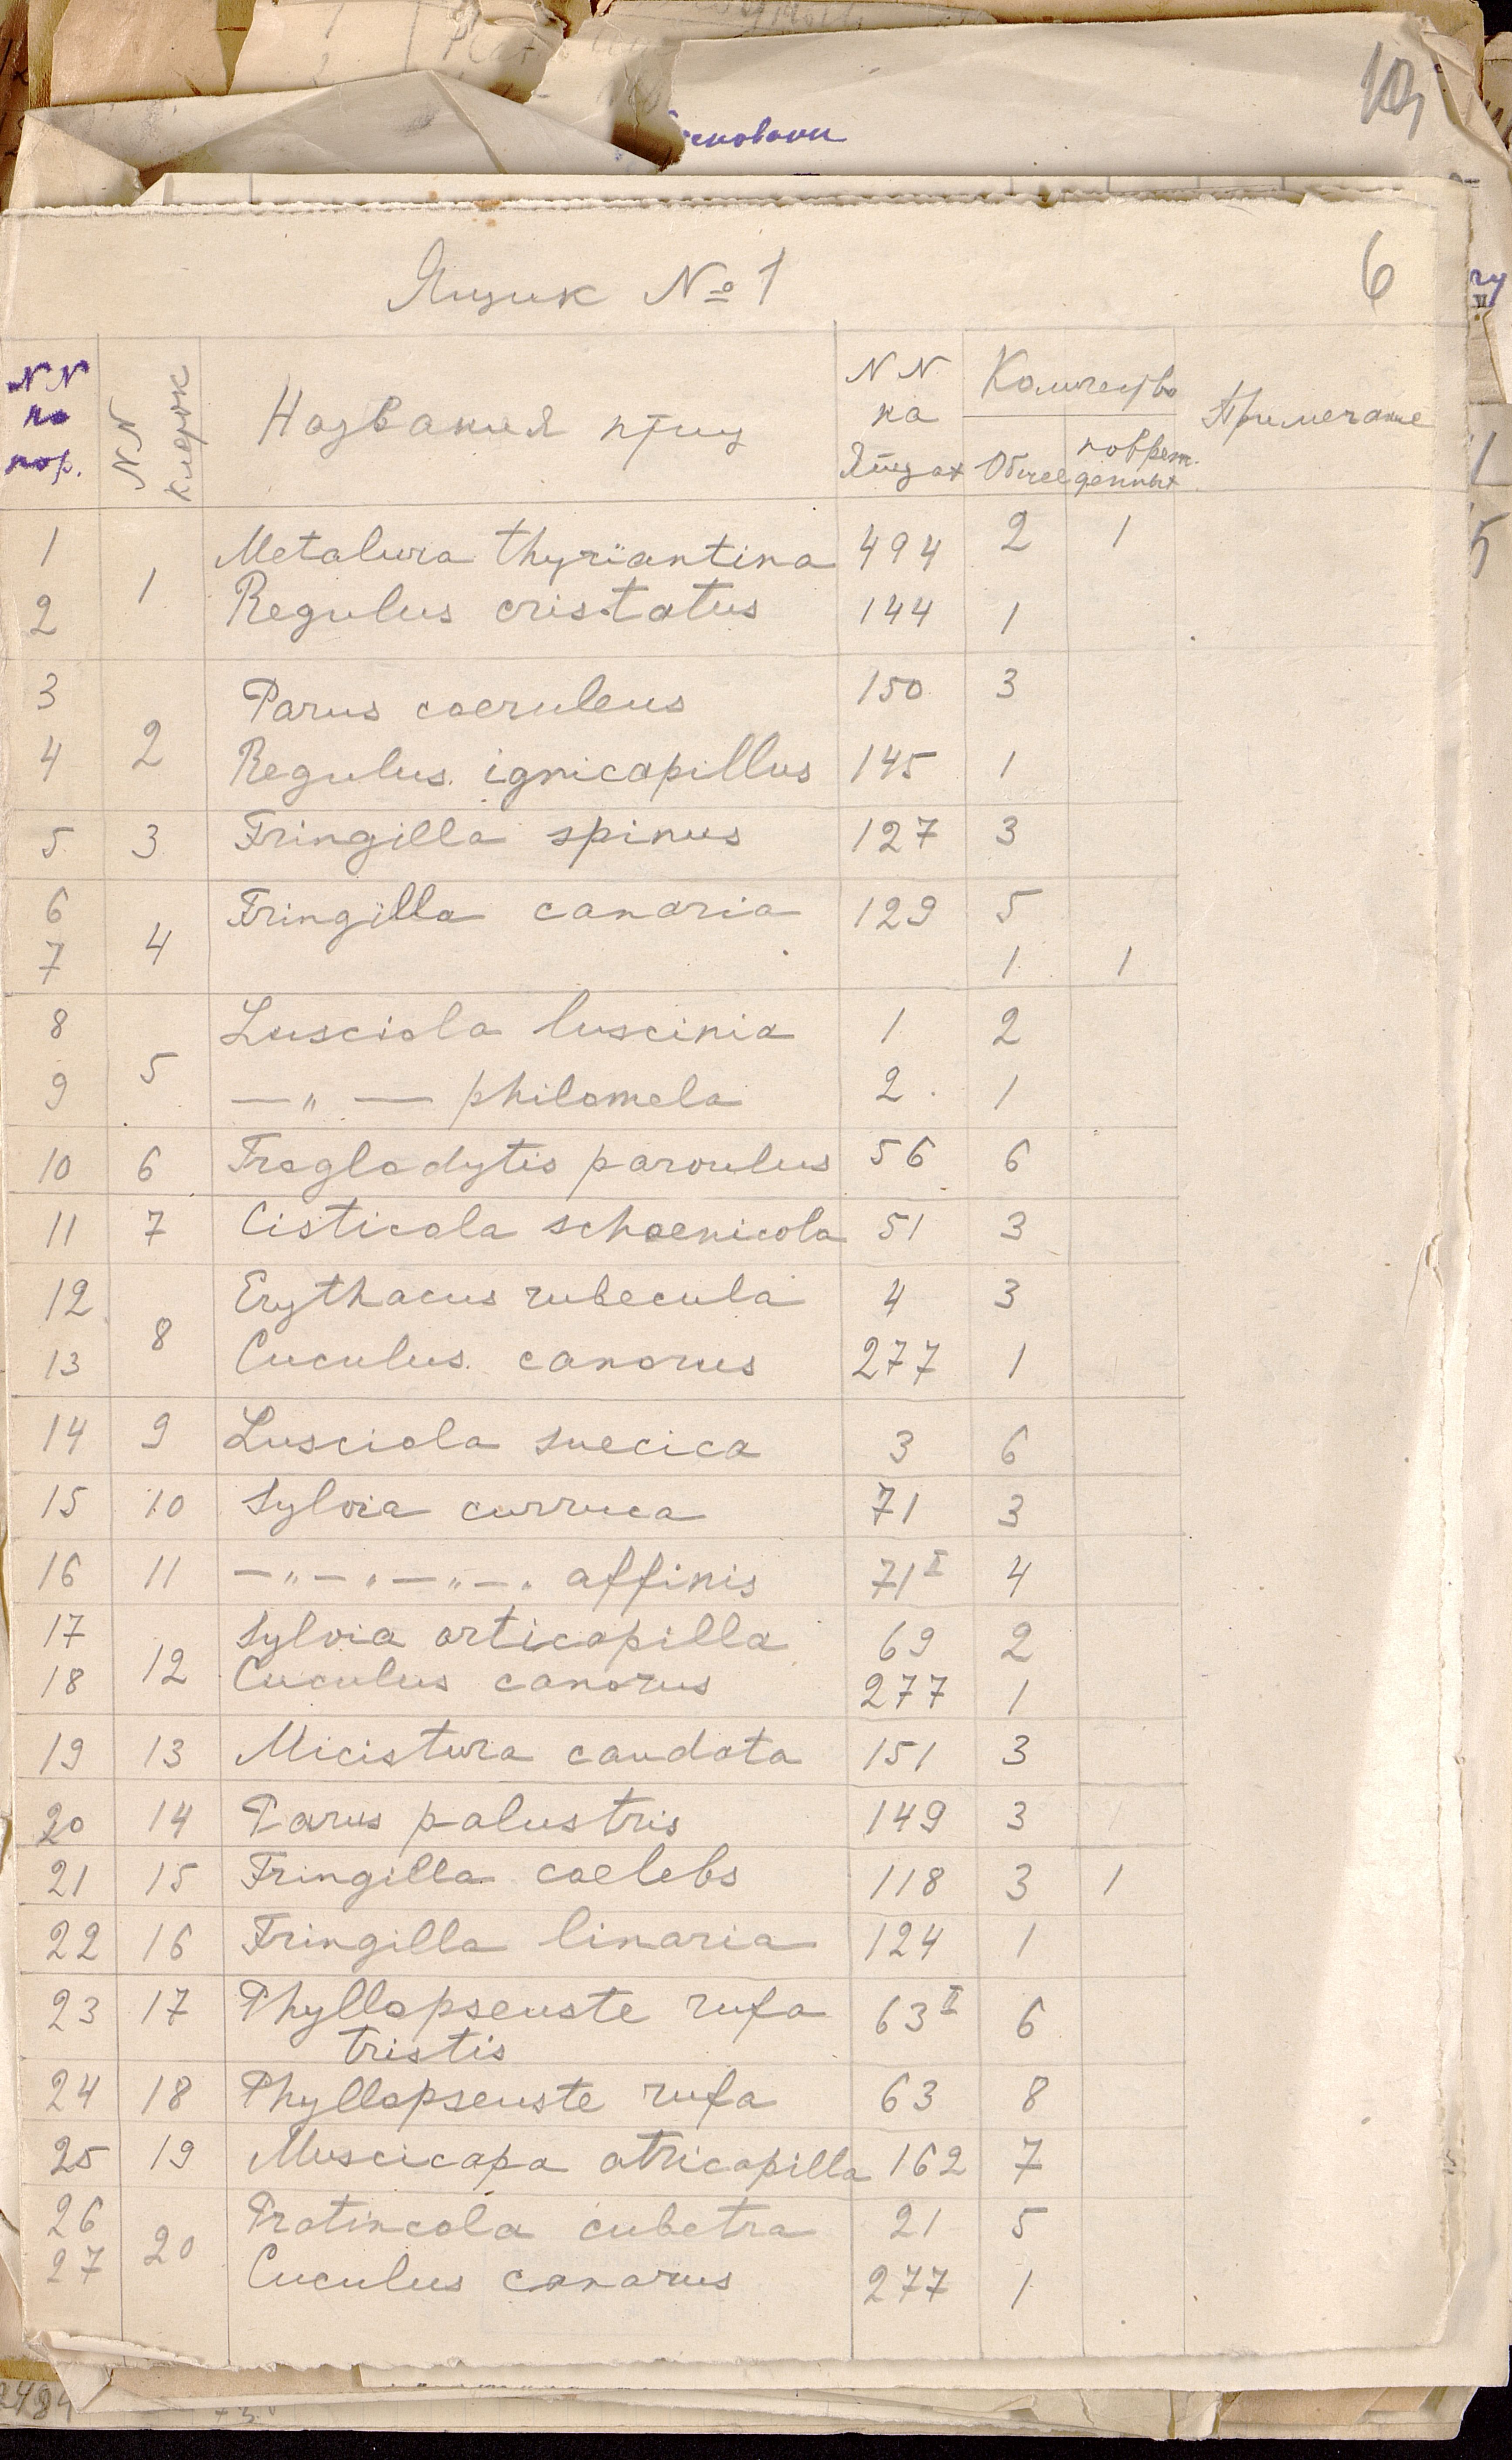 10
6
Ящик № 1
NN по пор. | NN клеток | Названия птиц | NN на яйцах | Количество | Примечание
Общее | поврежденных
1 | 1 | Metalura thyriantina | 494 | 2 | 1
2 | Regulus cristatus | 144 | 1
3 | 2 | Parus coeruleus | 150 | 3
4 | Regulus ignicapillus | 145 | 1
5 | 3 | Fringilla spinus | 127 | 3
6 | 4 | Fringilla canaria | 129 | 5
7 | 1 | 1
8 | 5 | Lusciola luscinia | 1 | 2
9 | —„— philomela | 2 | 1
10 | 6 | Troglodytis parvulus | 56 | 6
11 | 7 | Cisticola schoenicola | 51 | 3
12 | 8 | Erythacus rubecula | 4 | 3
13 | Cuculus canorus | 277 | 1
14 | 9 | Lusciola suecica | 3 | 6
15 | 10 | Sylvia curruca | 71 | 3
16 | 11 | —„—„—„—„ affinis | 71 I | 4
17 | 12 | Sylvia articapilla | 69 | 2
18 | Cuculus canorus | 277 | 1
19 | 13 | Micistura caudata | 151 | 3
20 | 14 | Parus palustris | 149 | 3
21 | 15 | Fringilla coelebs | 118 | 3 | 1
22 | 16 | Fringilla linaria | 124 | 1
23 | 17 | Phyllopseuste rufa | 63 I | 6
tristis
24 | 18 | Phyllopseuste rufa | 63 | 8
25 | 19 | Muscicapa atricapilla | 162 | 7
26 | 20 | Pratincola cubetra | 21 | 5
27 | Cuculus canorus | 277 | 1